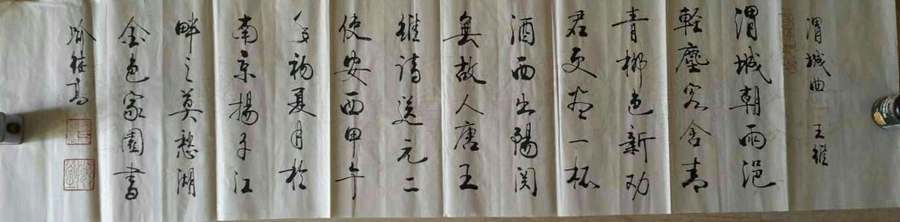 渭城曲 王維
渭城朝雨浥
輕塵客舍青
青柳色新劝
君更尽一杯
酒西出陽関
無故人唐王
維詩送元二
使安西甲午
年初夏月於
南京揚子江
畔之莫愁湖
金色家園書